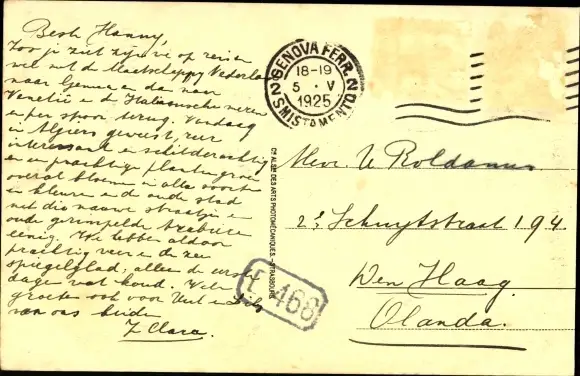 Beste Hanny,
Zoo je ziet zijn we op reis en
wel met de Maatschappij Nederland
naar Genua en dan naar
Venetië en de Italiaansche meren
en per spoor terug. Vandaag
in Algiers geweest, zeer
interessant en schilderachtig
en een prachtige plantengroei
overal bloemen in alle soorten
en kleuren en de oude stad
met die nauwe straatjes en
oude gerimpelde
eenig. We hebben aldoor
prachtig weer en de zee
spiegelglad; alleen de eerste
dagen wat koud. Vele
groeten ook voor
van ons beiden
Clara.
GENOVA FERR.
18-19
5 · V
1925
2 SMISTAMENTO 2
Cie ALSne DES ARTS PHOTOMÉCANIQUES. — STRASBOURG
E 466
Mevr Roldanus
2e Schuytstraat 194.
Den Haag
Olanda.